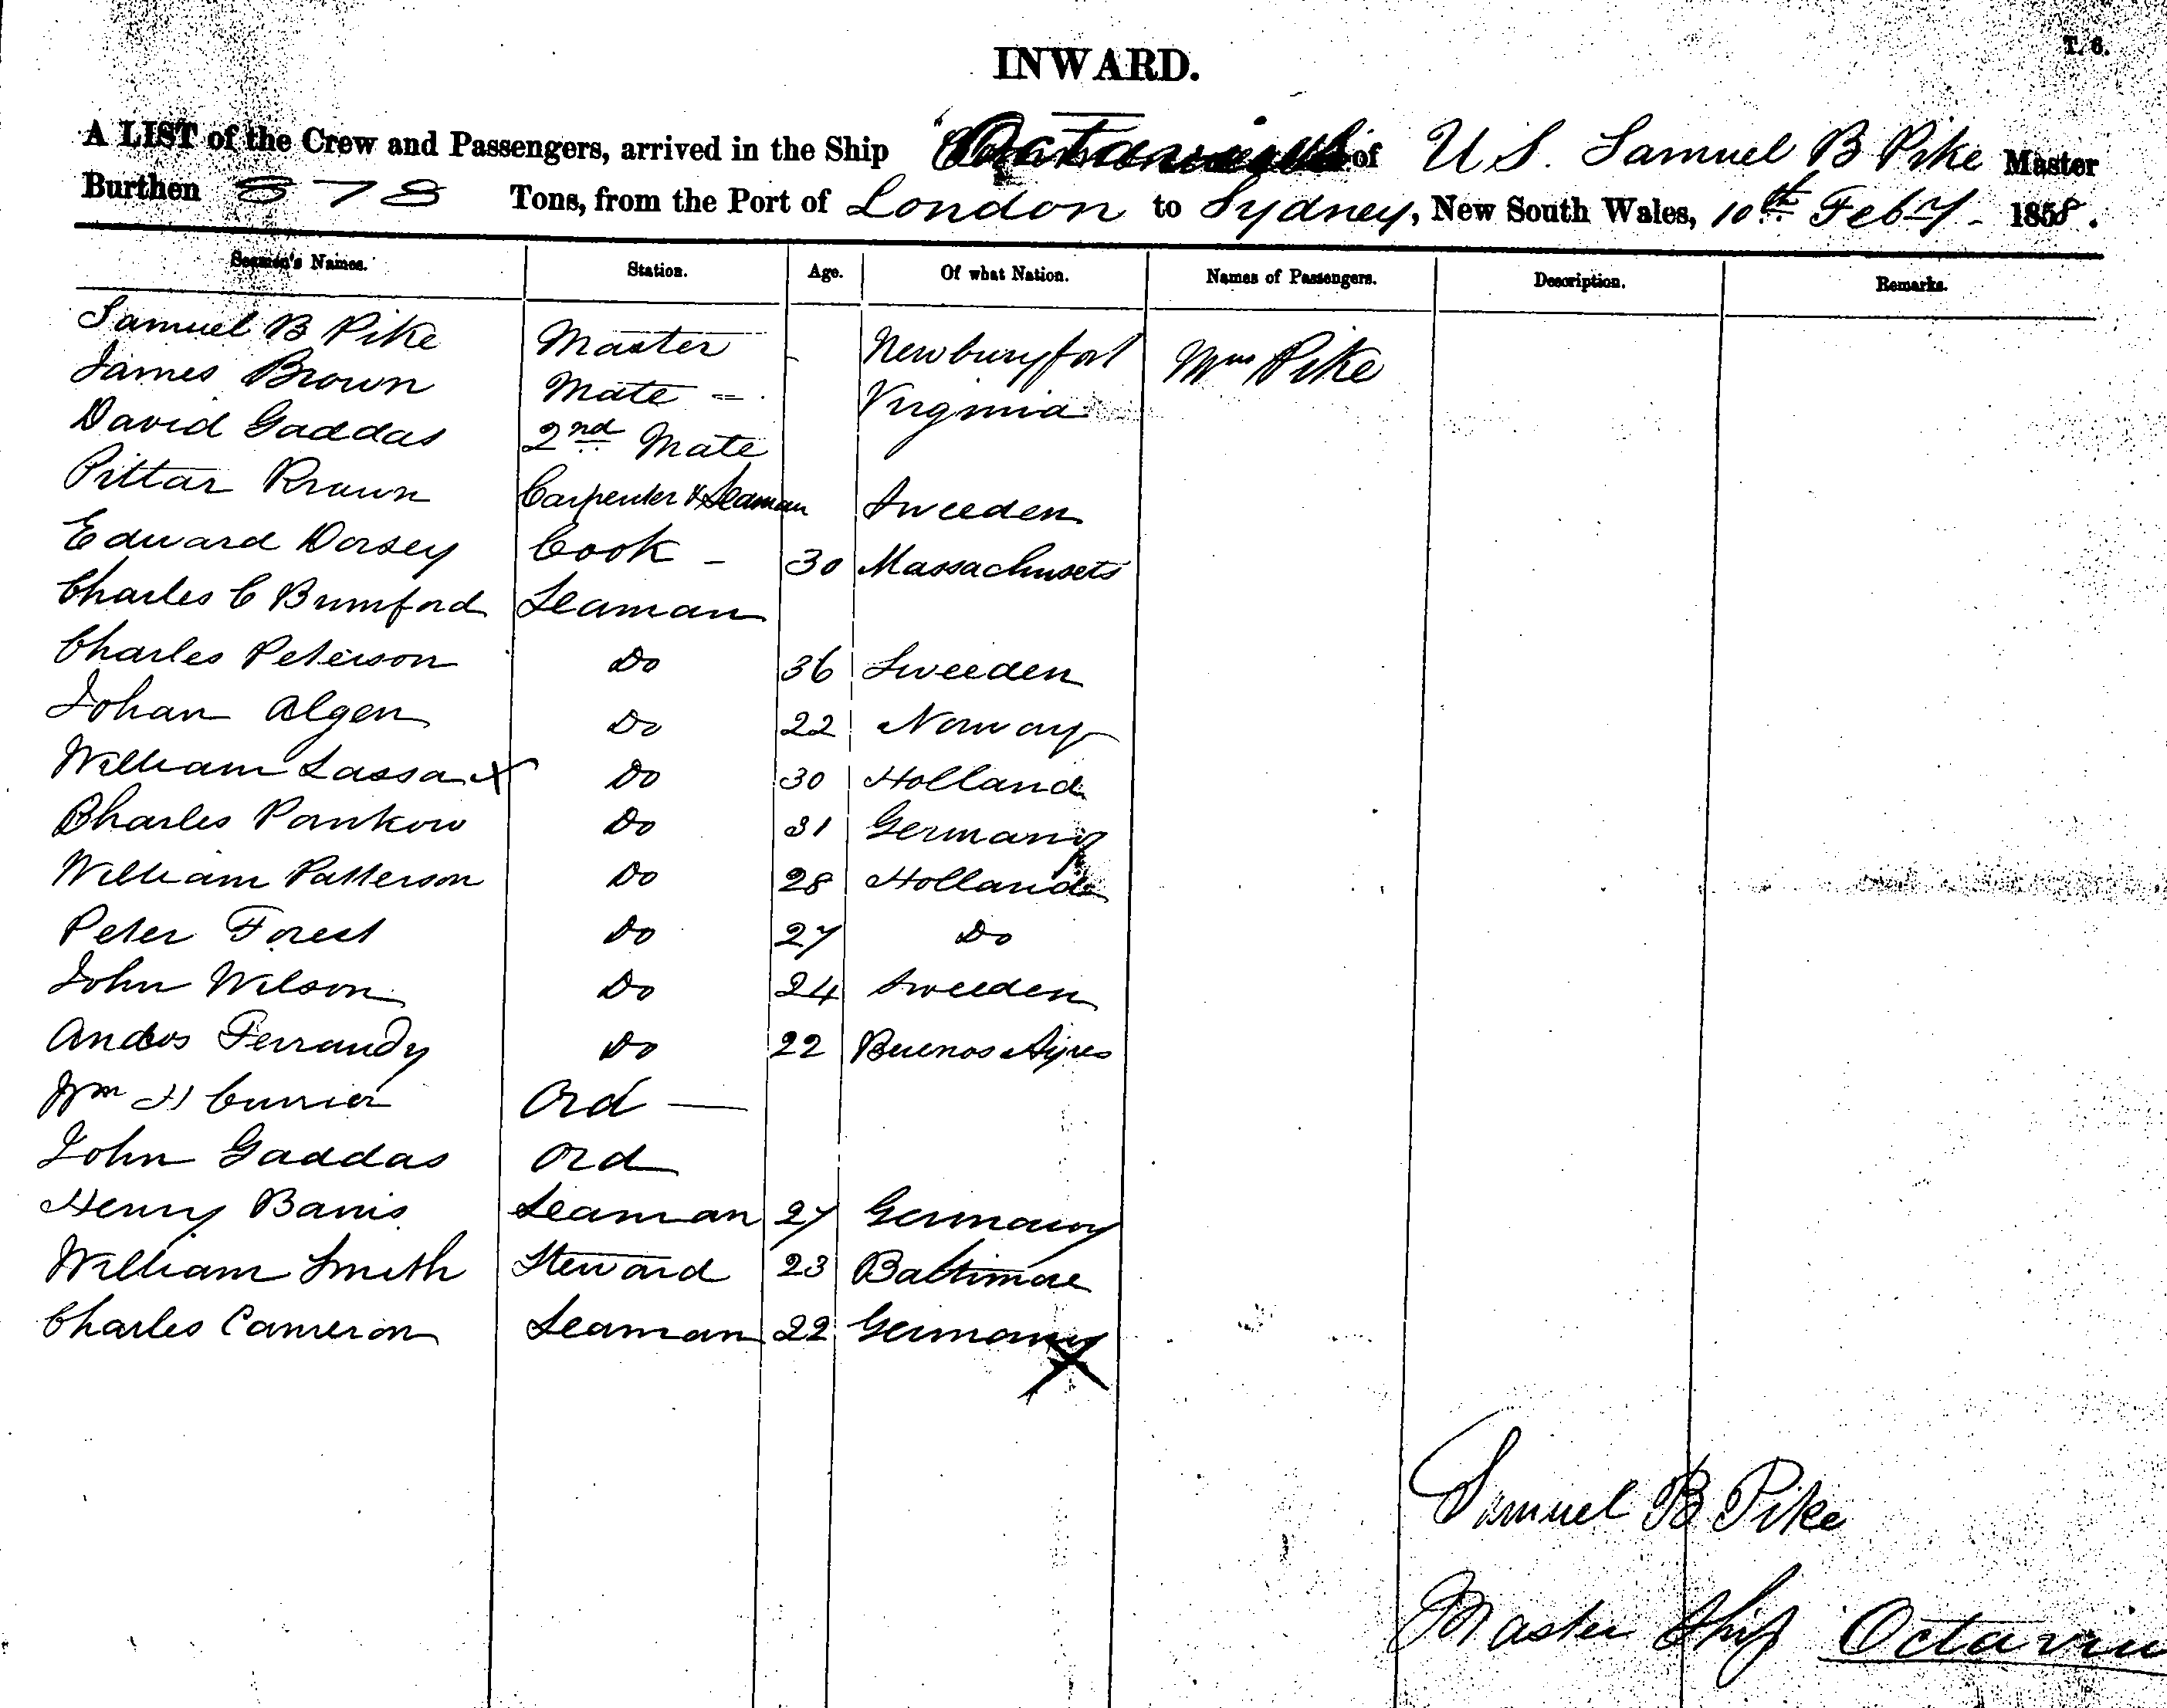 T. 6.
INWARD.
A LIST of the Crew and Passengers, arrived in the Ship " of U S. Samuel B Pike Master
Burthen 878 Tons, from the Port of London to Sydney, New South Wales, 10th Feby - 1858.
Seamen's Names. Station. Age. Of what Nation. Names of Passengers. Description. Remarks.
Samuel B Pike Master - Newburyport Mrs Pike
James Brown Mate - Virginia
David Gaddas 2nd Mate
Pittar Carpenter & Seaman Sweeden
Edward Dorsey Cook - 30 Massachusets
Charles C Bumford Seaman
Charles Peterson Do 36 Sweeden
Johan Algen Do 22 Norway
William Lassa X Do 30 Holland
Charles Pankow Do 31 Germany
William Patterson Do 28 Holland
Peter Forest Do 27 Do
John Wilson Do 24 Sweeden
Ferrandy Do 22 Buenos Ayres
Wm H Currier Ord —
John Gaddas Ord
Henry Seaman 27 Germany
William Smith Steward 23 Baltimore
Charles Cameron Seaman 22 Germany
X
Samuel B Pike
Master Ship Octaviu